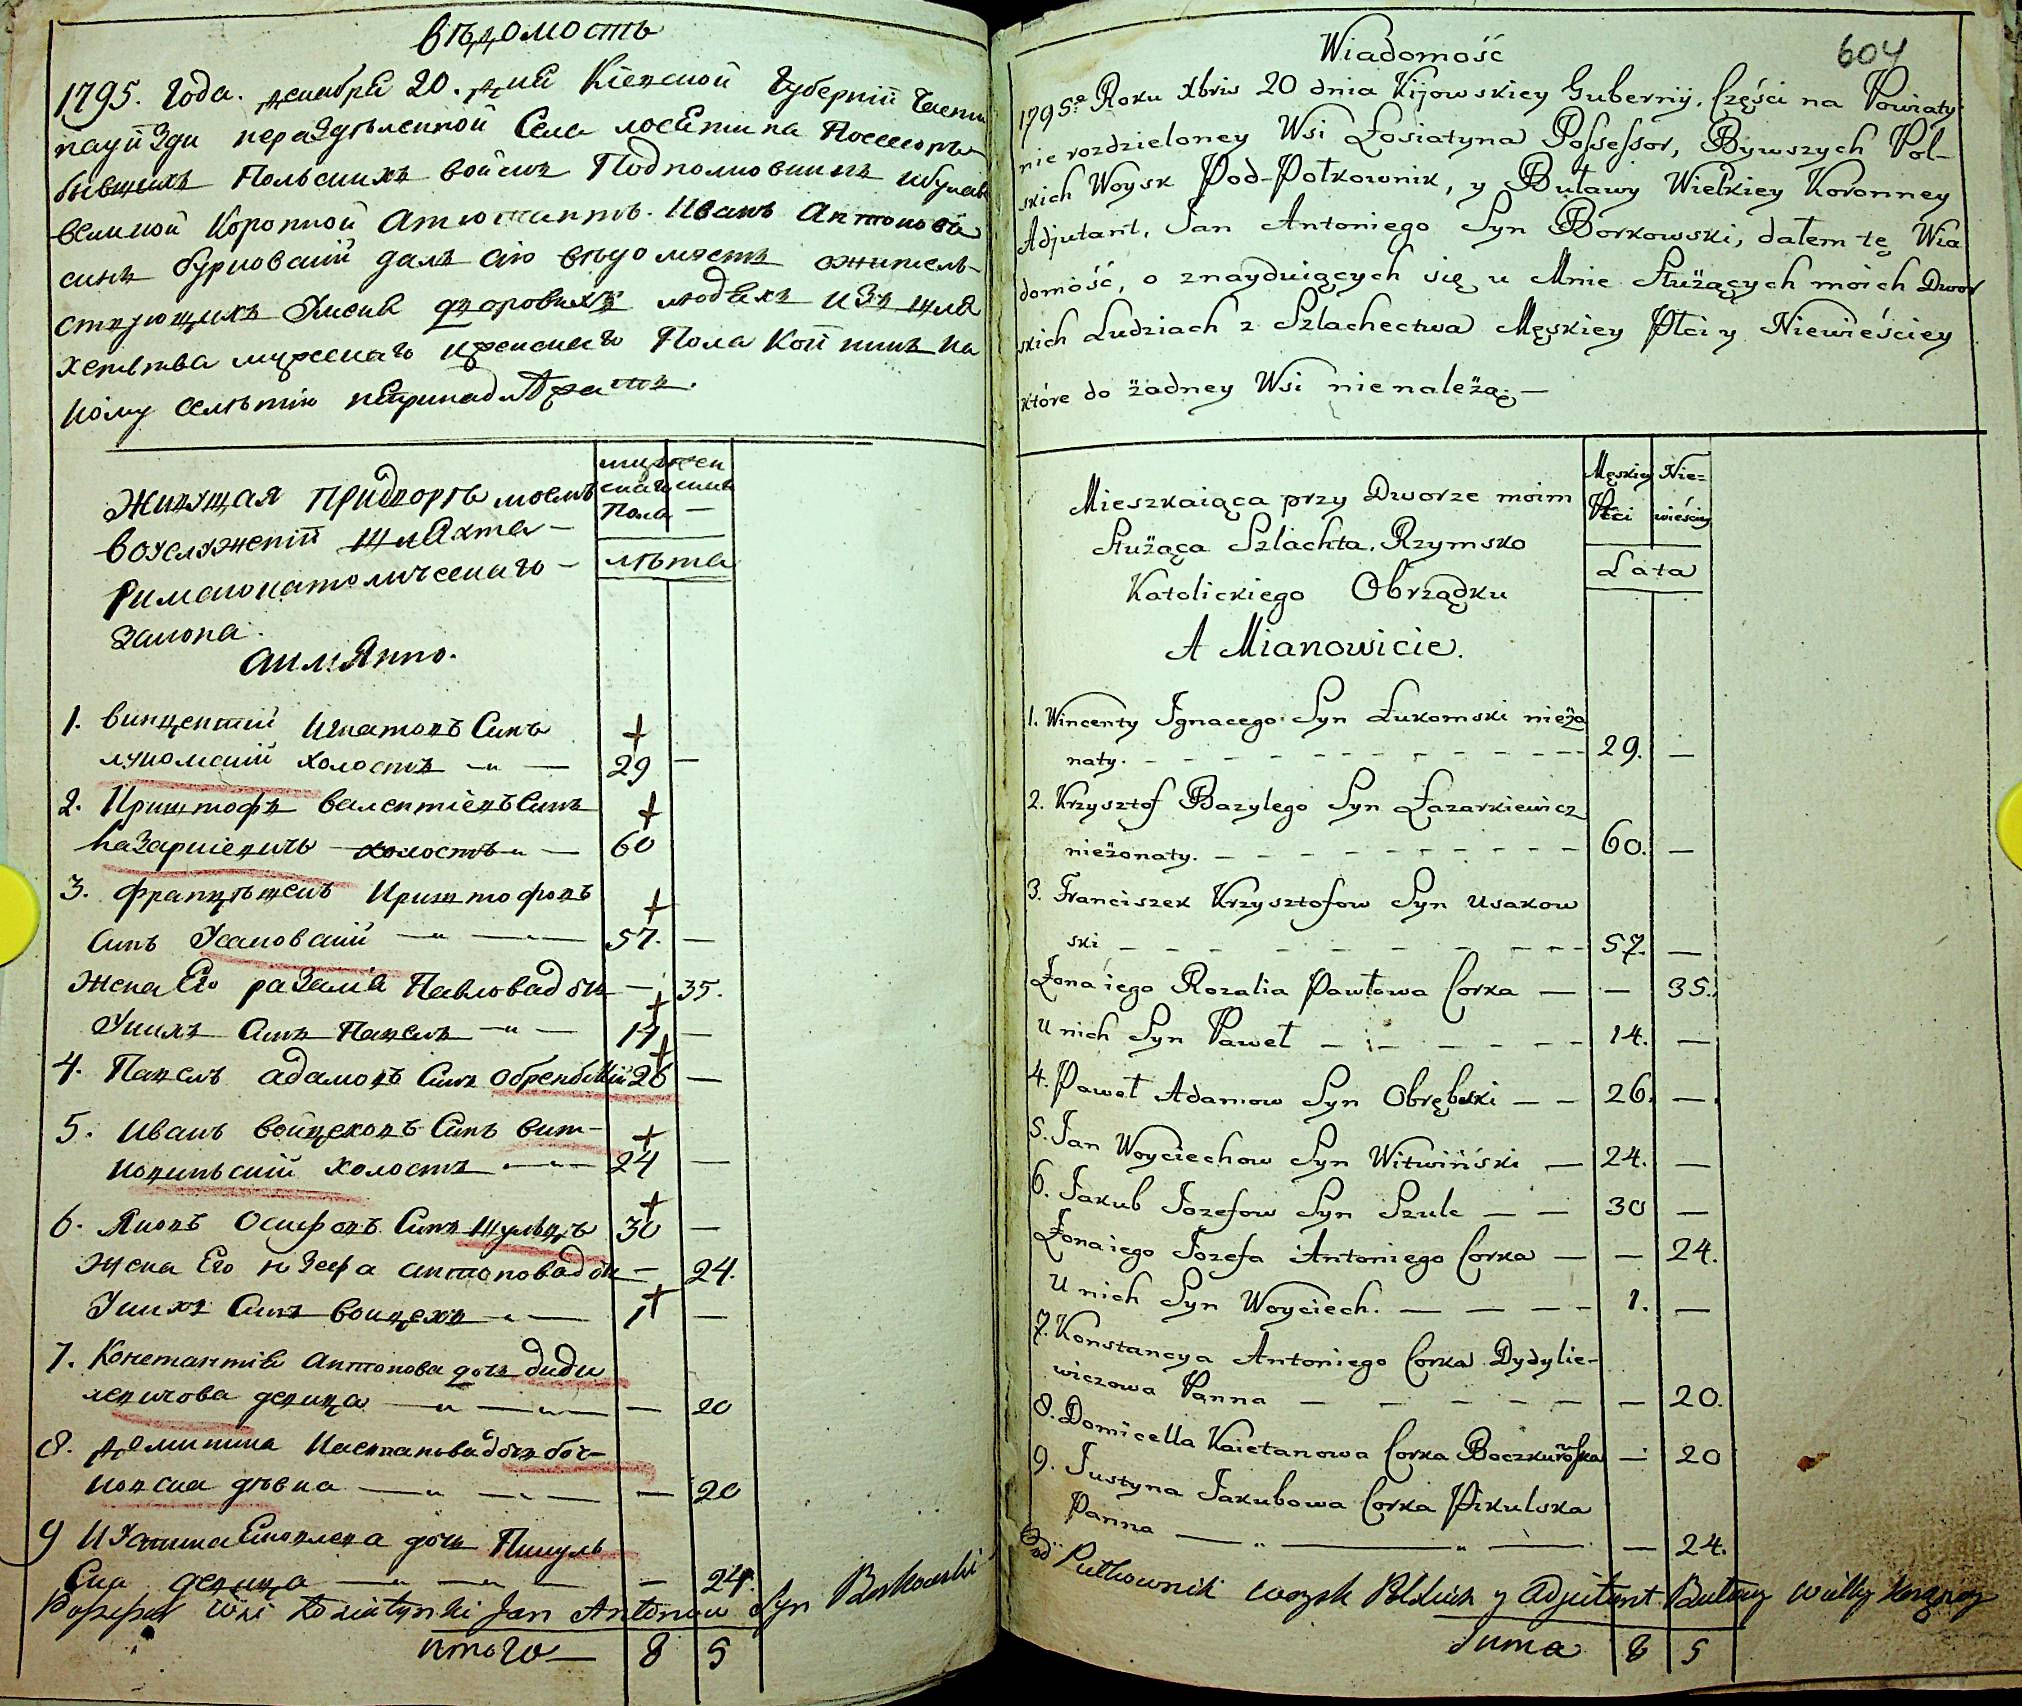 вѣдомость
1795. Года. декабря 20. дня Кіевской Губерніи Части
науѣзди нераздѣленной Села лосятина Поссесоръ
бывшихъ Польскихъ войскъ Подполковникъ ибулавы
великой Коронной Атютантъ. Иванъ Антоновъ
синъ бурковскій далъ сію вѣдомость ожитель-
ствующихъ Уменя дворовихъ людяхъ изъ шля
хетьтва мужескаго иженскаго Пола Кои нинѣ на
кому селѣнію непринадлѣжатъ.
Живущая Придворѣ моемъ
воуслуженіи шляхта —
Римскокатолическаго —
Закона.
аимянно.
муж жен
скаго скии
Пола —
лѣта
1. винцентій Игнатовъ Синъ
лукомскій холостъ — 29 —
2. Криштофъ валентіевъ Синъ
лазаркіевичъ холостъ — 60
3. францѣшекъ Криштофовъ
Синъ Усаковскій — 57. —
Жена Его разалія Павловадочь — 35.
Унихъ Синъ Павелъ — 14 —
4. Павелъ адамовъ Синъ обренбскій 26 —
5. Иванъ войцеховъ Синъ вит-
ковиньскій холостъ — 24 —
6. Яковъ Осифовъ Синъ шульцъ 30 —
Жена Его юзефа антоновадочь — 24.
Унихъ Синъ воицехъ — 1 —
7. Константія антонова дочь диди
левичова девица — — 20
8. демицила Касетановадочь боч-
ковска дѣвка — — 20
9 ИУстина Еяковлева дочь Пикуль
Ска девица — — 24.
Possessor Wsi Łosiatynski Jan Antonow Syn Borkowski
итого — 8 5
604
Wiadomość
1795.º Roku Xbris 20 dnia Kijowskiey Gubernij, Części na Powiaty
nie rozdzieloney Wsi Łosiatyna Possessor, Bywszych Pol-
skich Woysk Pod-Połkownik, y Buławy Wielkiey Koronney
Adjutant, Jan Antoniego Syn Borkowski, dałem tę Wia
domość, o znayduiących się u Mnie Służących moich Dwor
skich Ludziach z Szlachectwa Męskiey Płci y Niewieściey
które do żadney Wsi nie należą. —
Mieszkaiąca przy Dworze moim
Służąca Szlachta. Rzymsko
Katolickiego Obrządku
A Mianowicie.
Męskiey Nie=
Płci wieściey
Lata
1. Wincenty Ignacego Syn Łukomski nieżo
naty. — 29. —
2. Krzysztof Bazylego Syn Łazarkiewicz
nieżonaty. — 60. —
3. Franciszek Krzysztofow Syn Usakow
ski — 57. —
Żona iego Rozalia Pawłowa Corka — — 35.
U nich Syn Paweł — 14. —
4. Paweł Adamow Syn Obrębski — 26. —
5. Jan Woyciechow Syn Witwiński — 24. —
6. Jakub Jozefow Syn Szulc — 30 —
Żona iego Jozefa Antoniego Corka — — 24.
U nich Syn Woyciech. — 1. —
7. Konstancya Antoniego Corka Dydylie-
wiczowa Panna — — 20.
8. Domicella Kaietanowa Corka Boczkowska — 20
9. Justyna Jakubowa Corka Pikulska
Panna — — 24.
Pod Pułkownik woysk Polskich y Adjutant Buławy Wielky
Suma 8 5